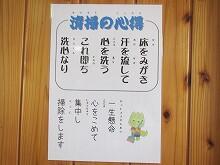 清掃の心得
床をみがき
汗を流して
心を洗う
これ即ち
洗心なり
一生懸命
心をこめて
集中し
掃除をします